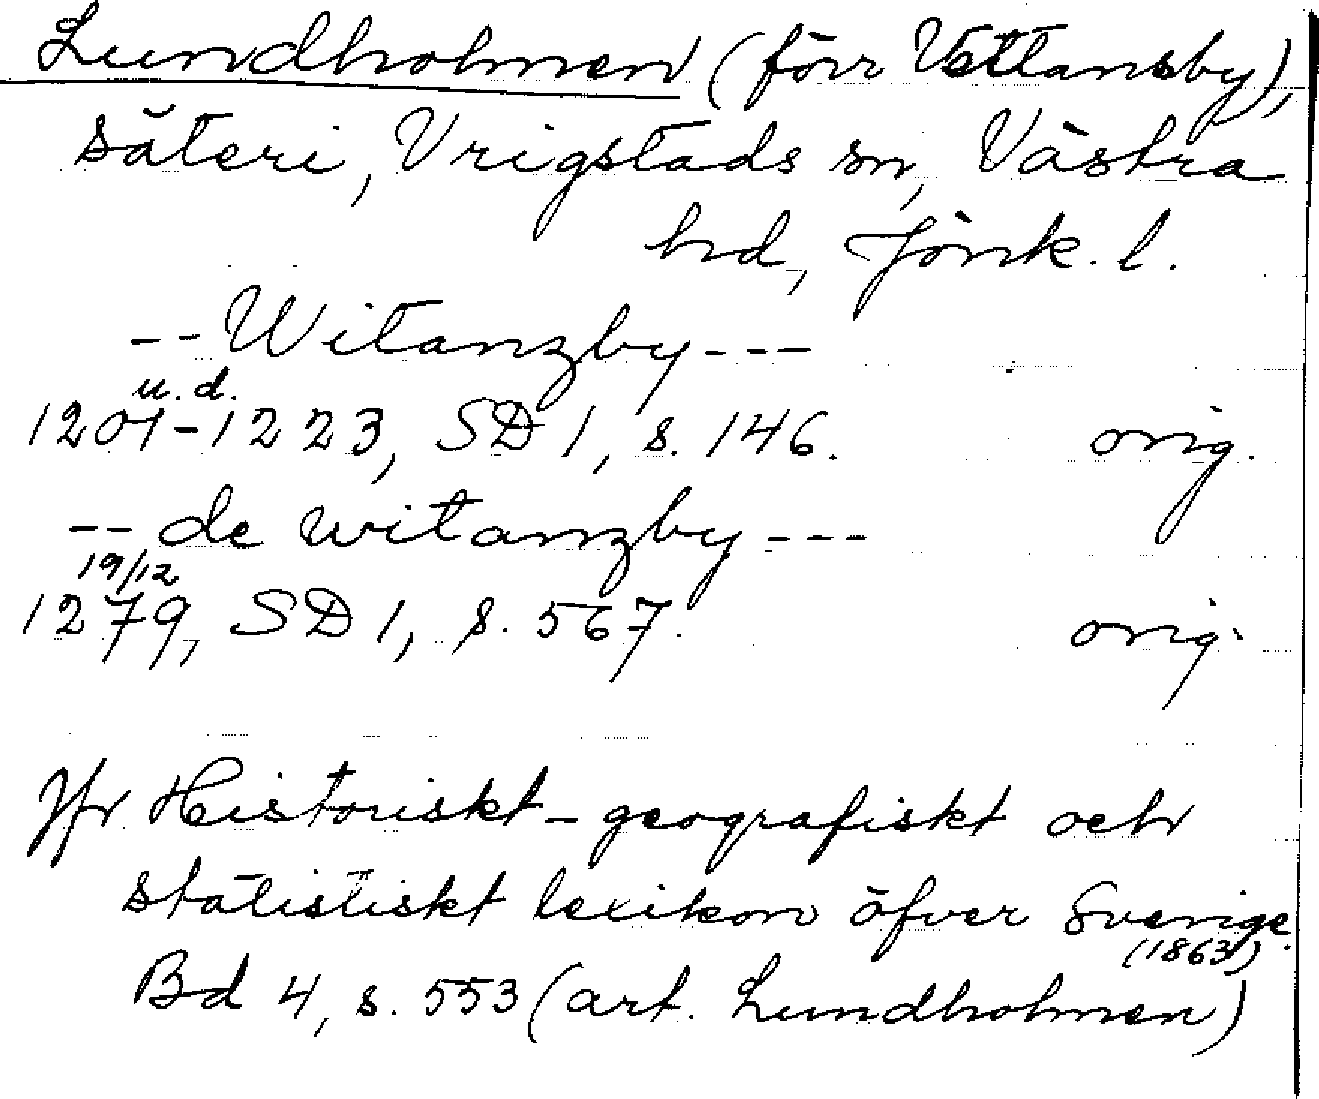 Lundholmen (förr Vetlansby),
säteri, Vrigstads sn, Västra
hd, Jönk. l.
-- Witanzby ---
u. d.
1201-1223, SD 1, s. 146. orig.
-- de witanzby ---
19/12
1279, SD 1, s. 567. orig.
Jfr Historiskt-geografiskt och
statistiskt lexikon öfver Sverige.
(1863)
Bd 4, s. 553 (art. Lundholmen)